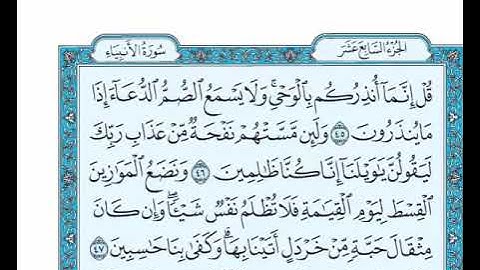 الجزء السابع عشر
سورة الأنبياء
قُلْ إِنَّمَآ أُنذِرُكُم بِٱلْوَحْىِ ۚ وَلَا يَسْمَعُ ٱلصُّمُّ ٱلدُّعَآءَ إِذَا
مَا يُنذَرُونَ ٤٥ وَلَئِن مَّسَّتْهُمْ نَفْحَةٌ مِّنْ عَذَابِ رَبِّكَ
لَيَقُولُنَّ يَٰوَيْلَنَآ إِنَّا كُنَّا ظَٰلِمِينَ ٤٦ وَنَضَعُ ٱلْمَوَٰزِينَ
ٱلْقِسْطَ لِيَوْمِ ٱلْقِيَٰمَةِ فَلَا تُظْلَمُ نَفْسٌ شَيْـًٔا ۖ وَإِن كَانَ
مِثْقَالَ حَبَّةٍ مِّنْ خَرْدَلٍ أَتَيْنَا بِهَا ۗ وَكَفَىٰ بِنَا حَٰسِبِينَ ٤٧